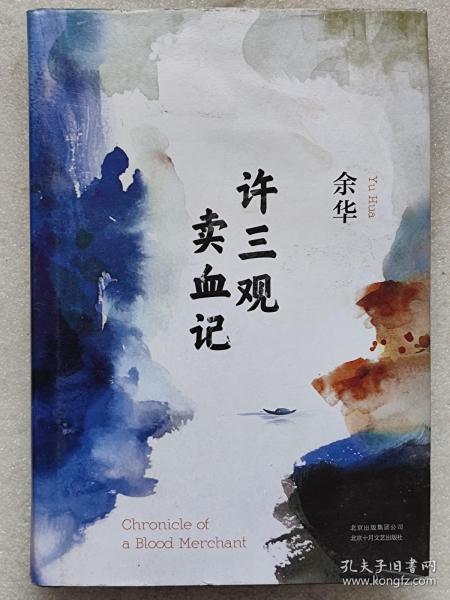 许三观
卖血记
余华
Yu Hua
Chronicle of
a Blood Merchant
北京出版集团公司
北京十月文艺出版社
孔夫子旧书网
www.kongfz.com